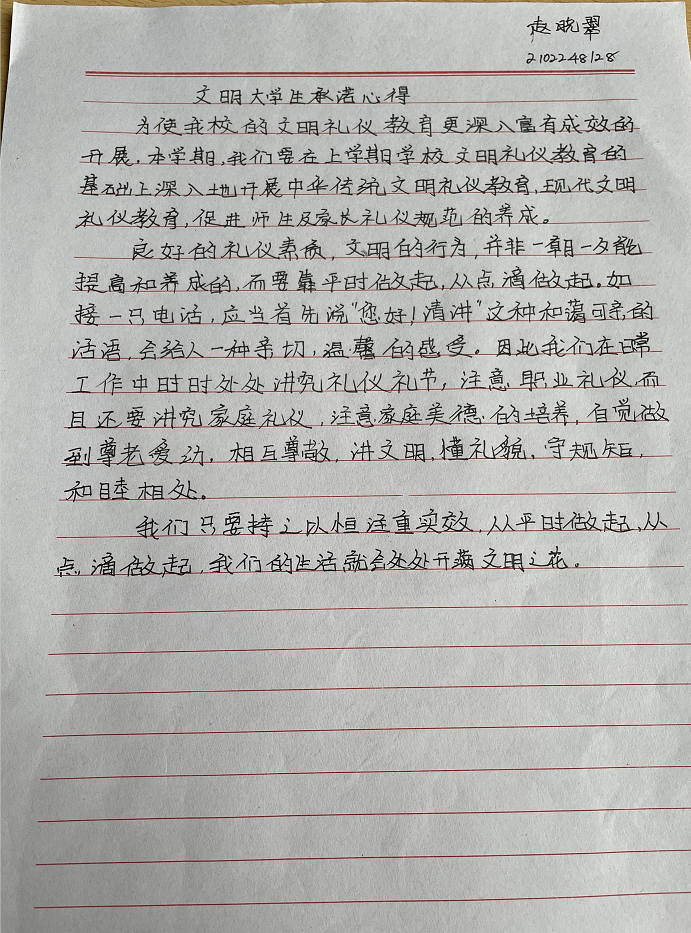 赵晓翠
2102248128
文明大学生承诺心得
为使我校的文明礼仪教育更深入富有成效的
开展,本学期,我们要在上学期学校文明礼仪教育的
基础上深入地开展中华传统文明礼仪教育,现代文明
礼仪教育,促进师生及家长礼仪规范的养成。
良好的礼仪素质,文明的行为,并非一朝一夕能
提高和养成的,而要靠平时做起,从点滴做起。如
接一只电话,应当首先说“您好!请讲”这种和蔼可亲的
话语,会给人一种亲切,温馨的感受。因此我们在日常
工作中时时处处讲究礼仪礼节,注意职业礼仪,而
且还要讲究家庭礼仪,注意家庭美德的培养,自觉做
到尊老爱幼,相互尊敬,讲文明,懂礼貌,守规矩,
和睦相处。
我们只要持之以恒注重实效,从平时做起,从
点滴做起,我们的生活就会处处开满文明之花。